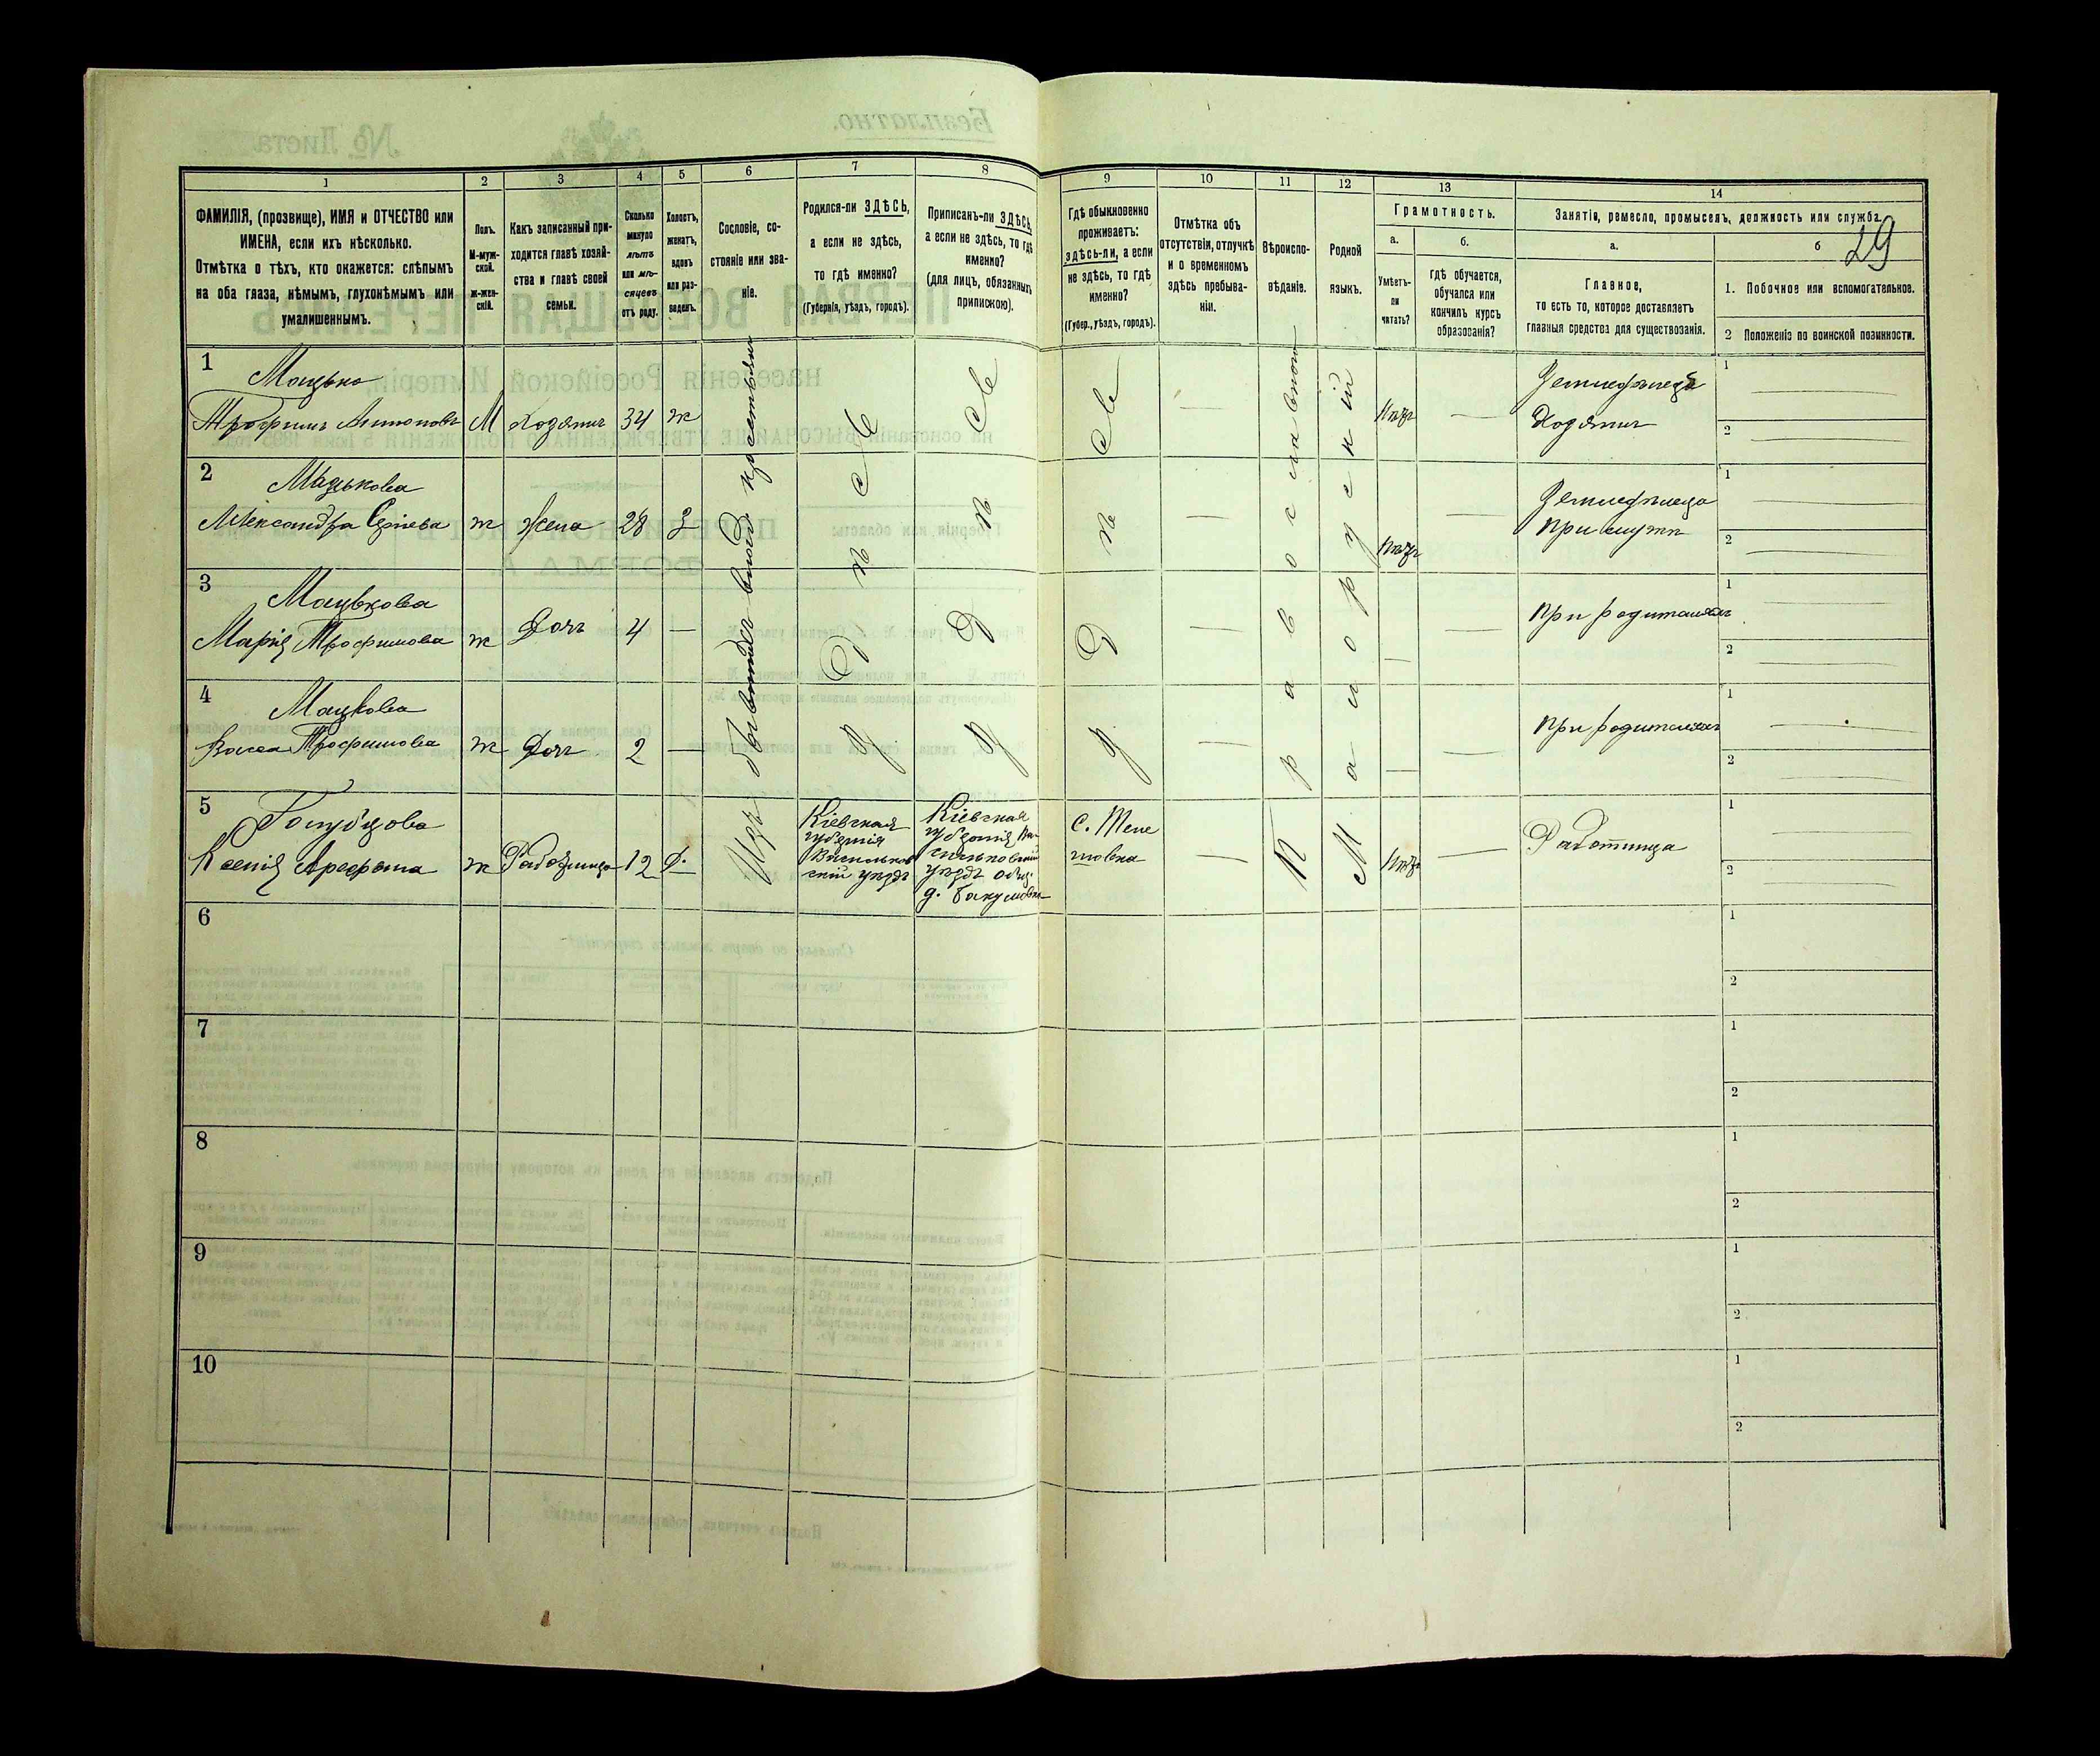 29
1
2
3
4
5
6
7
8
9
10
11
12
13
14
ФАМИЛІЯ, (прозвище), ИМЯ и ОТЧЕСТВО или
ИМЕНА, если ихъ нѣсколько.
Отмѣтка о тѣхъ, кто окажется: слѣпымъ
на оба глаза, нѣмымъ, глухонѣмымъ или
умалишеннымъ.
Полъ.
М-муж-
ской.
Ж-жен-
скій.
Какъ записанный при-
ходится главѣ хозяй-
ства и главѣ своей
семьи.
Сколько
минуло
лѣтъ
или мѣ-
сяцевъ
отъ роду.
Холостъ,
женатъ,
вдовъ
или раз-
веденъ.
Сословіе, со-
стояніе или зва-
ніе.
Родился-ли ЗДѢСЬ,
а если не здѣсь,
то гдѣ именно?
(Губернія, уѣздъ, городъ).
Приписанъ-ли ЗДѢСЬ,
а если не здѣсь, то гдѣ
именно?
(для лицъ, обязанныхъ
припискою).
Гдѣ обыкновенно
проживаетъ:
здѣсь-ли, а если
не здѣсь, то гдѣ
именно?
(Губер., уѣздъ, городъ).
Отмѣтка объ
отсутствіи, отлучкѣ
и о временномъ
здѣсь пребыва-
ніи.
Вѣроиспо-
вѣданіе.
Родной
языкъ.
Грамотность.
а.
б.
Умѣетъ-
ли
читать?
гдѣ обучается,
обучался или
кончилъ курсъ
образованія?
Занятіе, ремесло, промыселъ, должность или служба.
а.
б
Главное,
то есть то, которое доставляетъ
главныя средства для существованія.
1. Побочное или вспомогательное.
2 Положеніе по воинской повинности.
1
Мацько
Трофимъ Антоновъ М хозяинъ 34 ж
нѣтъ
Земледѣлецъ
Хозяинъ
1
2
2
Мацькова
Александра ж жена 28 З
нѣтъ
Земледѣлецъ
При мужѣ
1
2
3
Мацькова
Марія Трофимова ж Дочь 4 —
При родителяхъ
1
2
4
Мацькова
Васса Трофимова ж Дочь 2 —
При родителяхъ
1
2
Изъ бывшихъ крестьянъ
Здѣсь
Здѣсь
Здѣсь
Православное
Малорускій
5
Голубцова
Ксенія Арефьева ж Работница 12 Д.
Кіевская
губернія
Васильков
скій уѣздъ
Кіевская
губернія Ва-
сильковскій
уѣздъ
д.
с.
П
М
нѣтъ
Работница
1
2
6
1
2
7
1
2
8
1
2
9
1
2
10
1
2